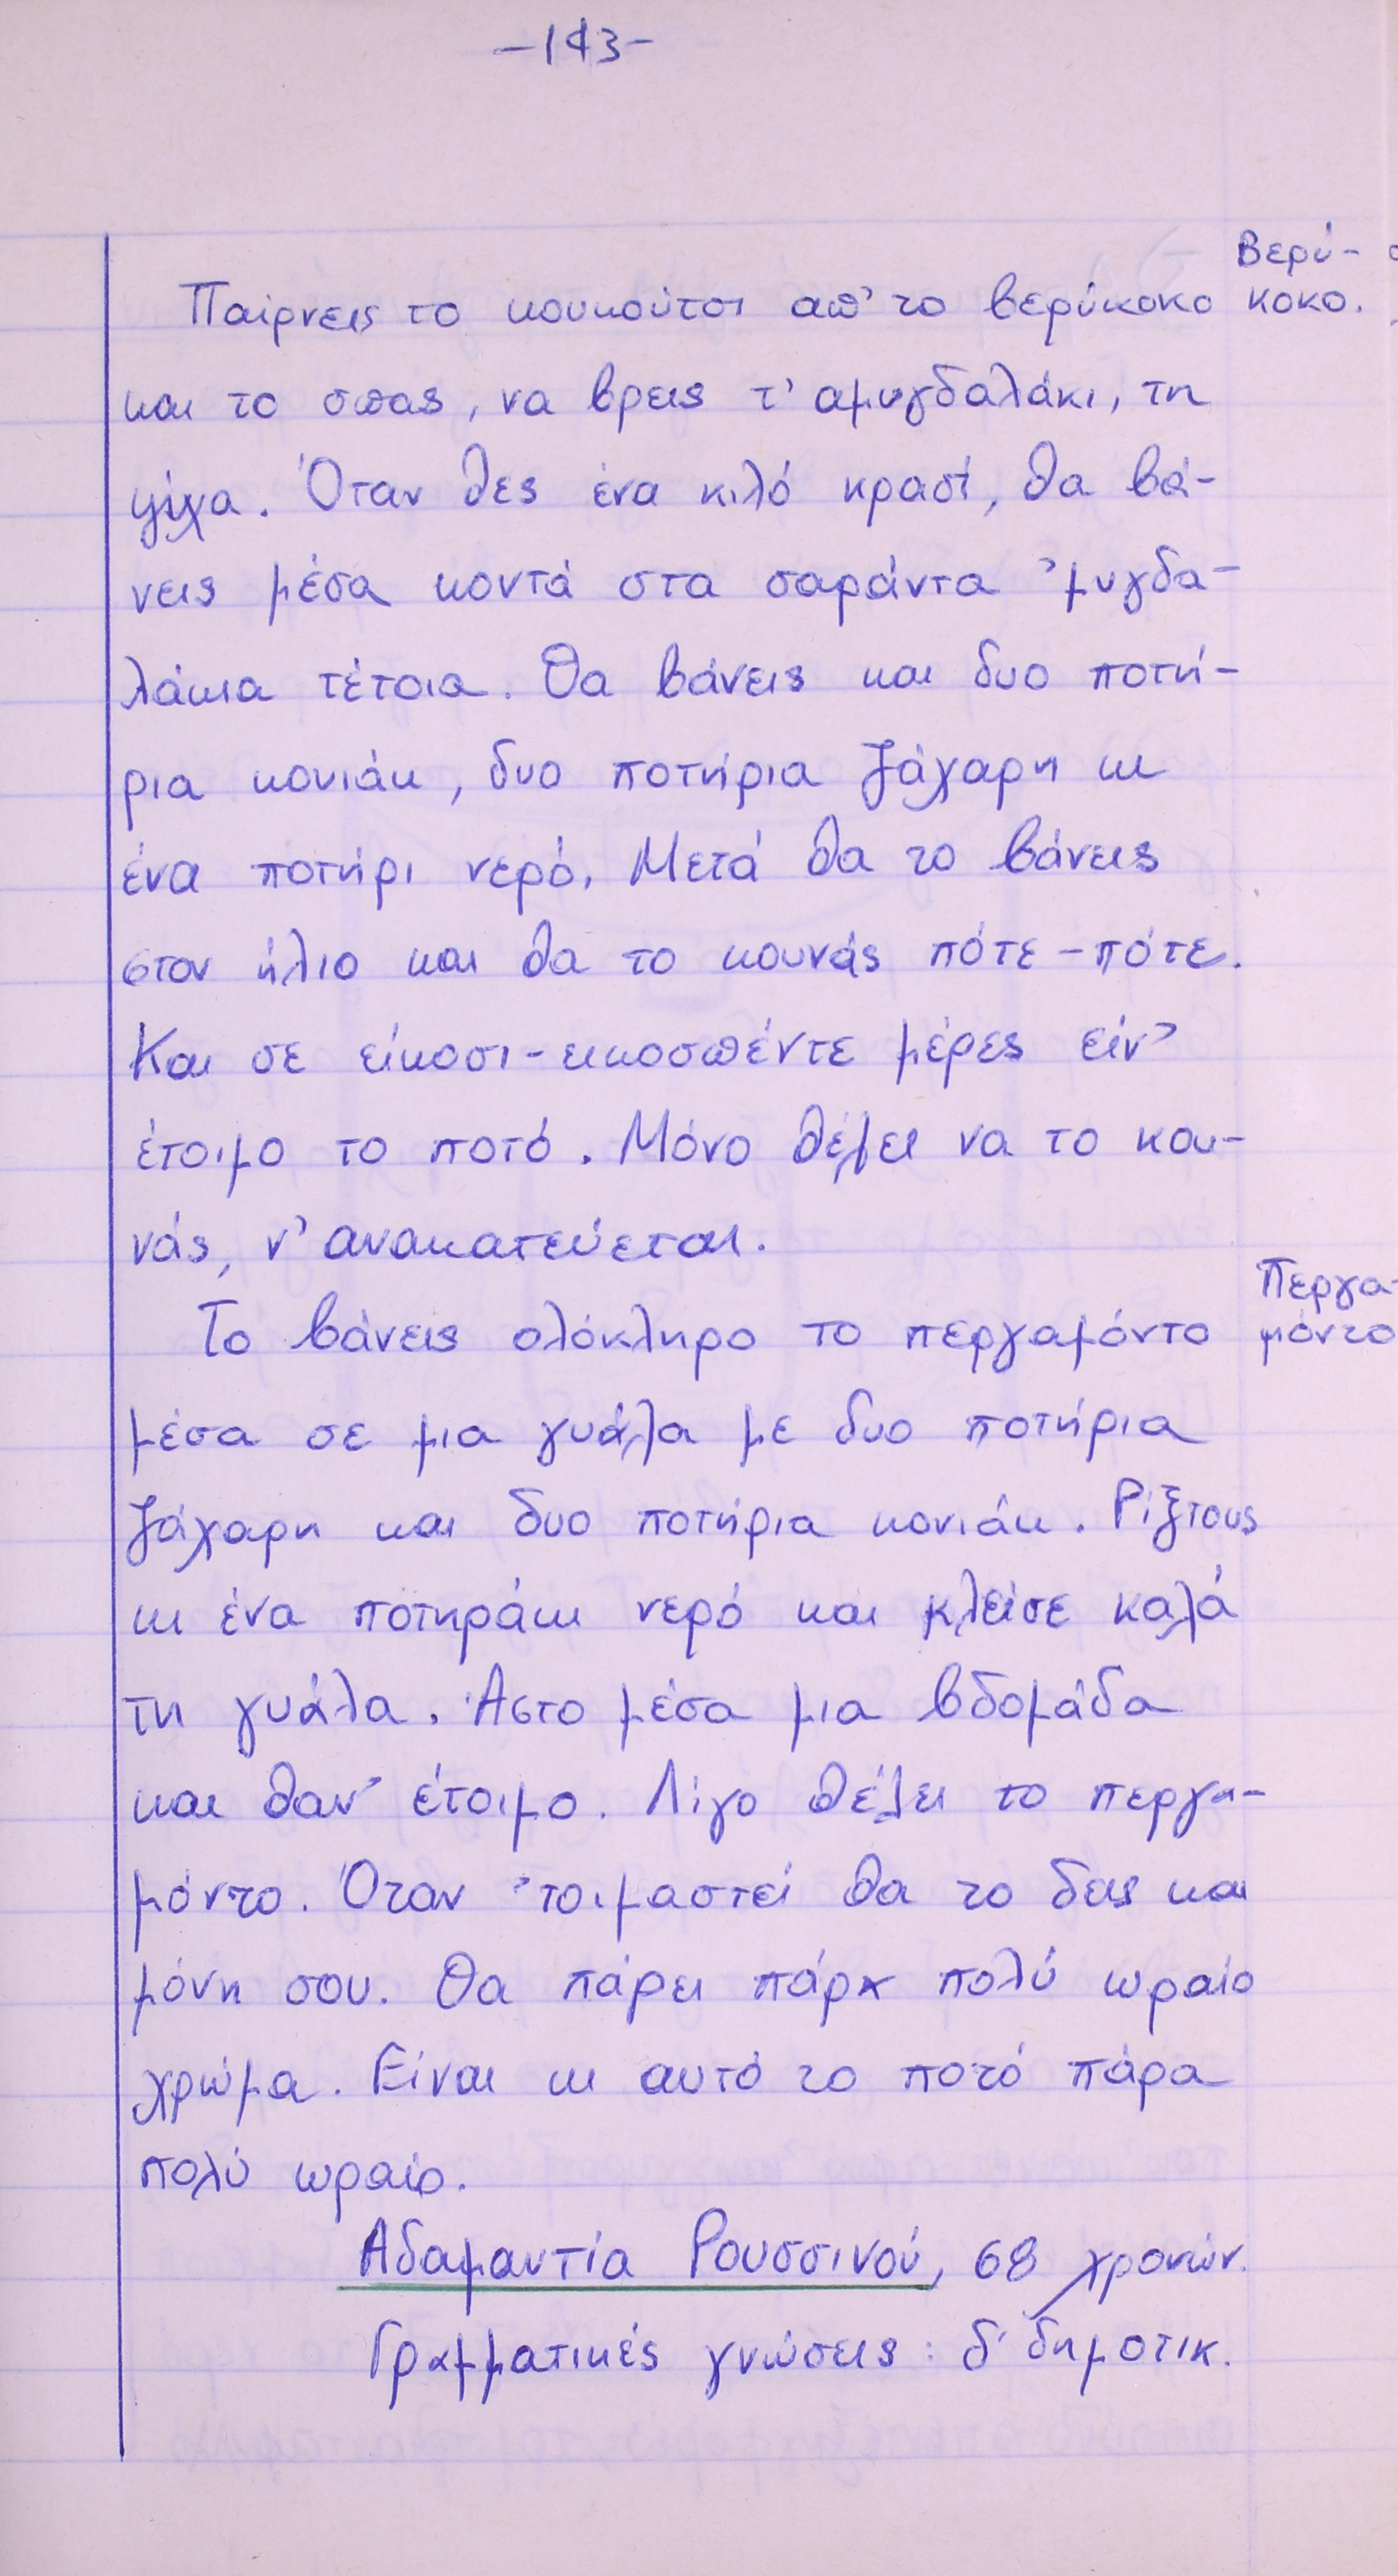 -143-
Βερύ-
Παίρνεις το κουκούτσι απ' το βερύκοκο κοκο.
και το σπας, να βρεις τ' αμυγδαλάκι, τη
ψίχα. Όταν θες ένα κιλό κρασί, θα βά-
νεις μέσα κοντά στα σαράντα 'μυγδα-
λάκια τέτοια. Θα βάνεις και δυο ποτή-
ρια κονιάκ, δυο ποτήρια ζάχαρη κι
ένα ποτήρι νερό. Μετά θα το βάνεις
στον ήλιο και θα το κουνάς πότε-πότε.
Και σε είκοσι-εικοσπέντε μέρες είν'
έτοιμο το ποτό. Μόνο θέλει να το κου-
νάς, ν' ανακατεύεται.
Περγα-
Το βάνεις ολόκληρο το περγαμόντο μόντο
μέσα σε μια γυάλα με δυο ποτήρια
ζάχαρη και δυο ποτήρια κονιάκ. Ρίξτους
κι ένα ποτηράκι νερό και κλείσε καλά
τη γυάλα. Άστο μέσα μια βδομάδα
και θαν' έτοιμο. Λίγο θέλει το περγα-
μόντο. Όταν 'τοιμαστεί θα το δεις και
μόνη σου. Θα πάρει πάρα πολύ ωραίο
χρώμα. Είναι κι αυτό το ποτό πάρα
πολύ ωραίο.
Αδαμαντία Ρουσσινού, 68 χρονών.
Γραμματικές γνώσεις: δ' δημοτικ.